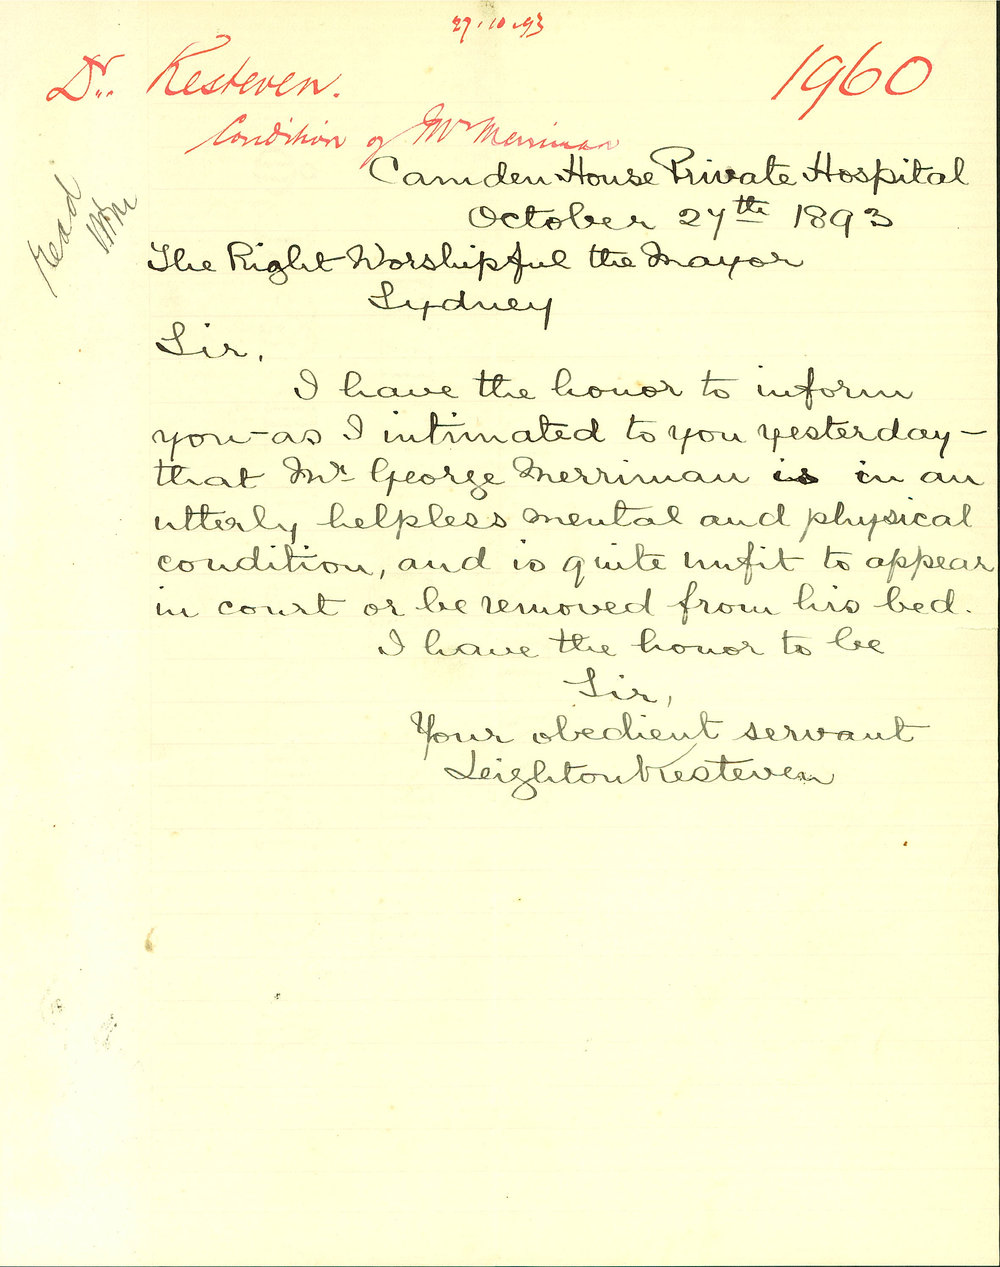 27.10.93
Dr. Kesteven.
1960
Condition of Mr Merriman
Read
Camden House Private Hospital
October 27th 1893
The Right Worshipful the Mayor
Sydney
Sir,
I have the honor to inform
you - as I intimated to you yesterday -
that Mr George Merriman is in an
utterly helpless mental and physical
condition, and is quite unfit to appear
in court or be removed from his bed.
I have the honor to be
Sir,
Your obedient servant
Leighton Kesteven